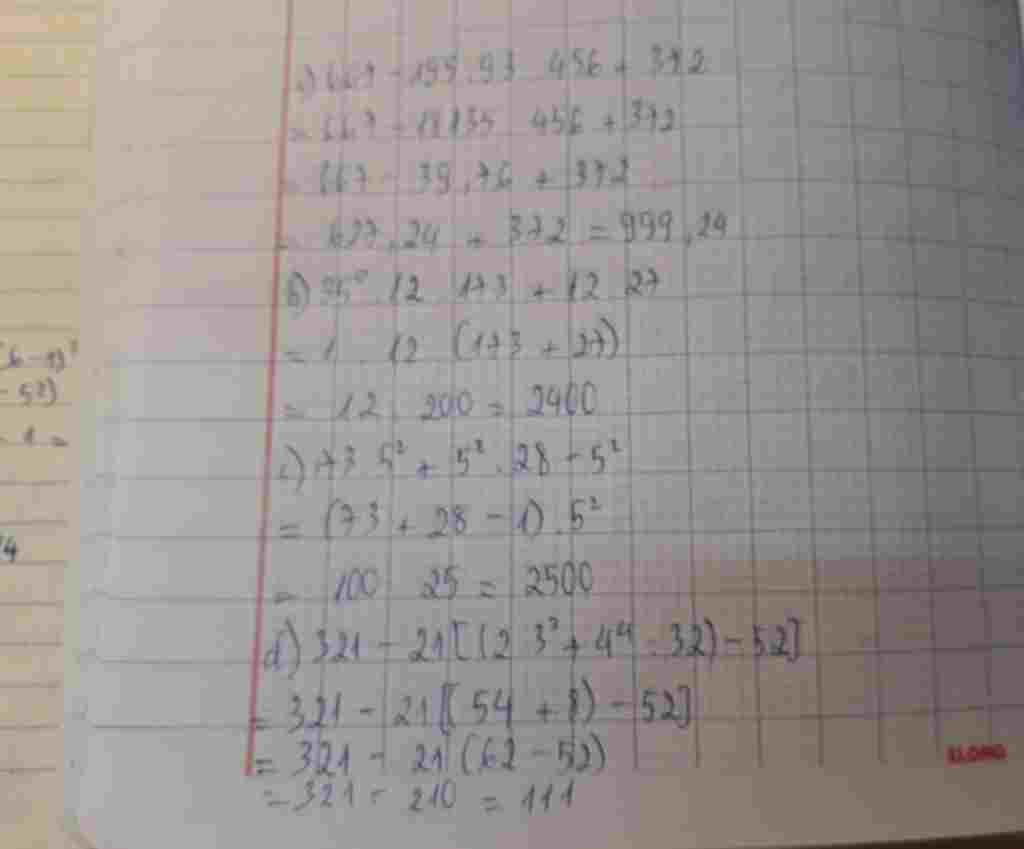 667 - 195.93 456 + 372
= 667 - 18135 456 + 372
= 667 - 39,76 + 372
= 627,24 + 372 = 999,24
b) 35⁰ 12 173 + 12 27
= 1 12 (173 + 27)
= 12 200 = 2400
c) 73 5² + 5² . 28 - 5²
= (73 + 28 - 1) . 5²
= 100 25 = 2500
d) 321 - 21[(2 3³ + 4⁴ : 32) - 52]
= 321 - 21[(54 + 8) - 52]
= 321 - 21(62 - 52)
= 321 - 210 = 111
- 52)
- 1 =
KLONG